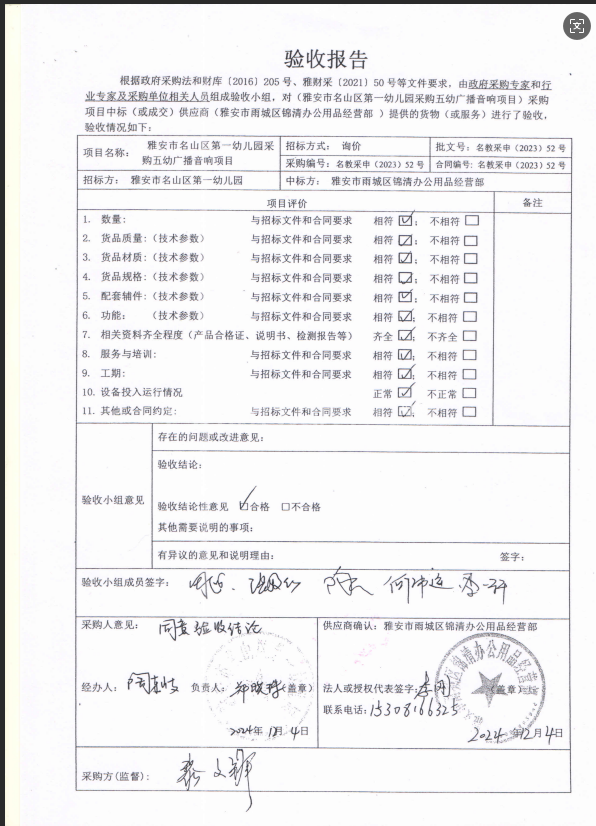 验收报告
根据政府采购法和财库〔2016〕205号、雅财采〔2021〕50号等文件要求，由政府采购专家和行
业专家及采购单位相关人员组成验收小组，对（雅安市名山区第一幼儿园采购五幼广播音响项目）采购
项目中标（或成交）供应商（雅安市雨城区锦清办公用品经营部 ）提供的货物（或服务）进行了验收，
验收情况如下：
项目名称： 雅安市名山区第一幼儿园采购五幼广播音响项目
招标方式： 询价 批文号：名教采申（2023）52号
采购编号：名教采申（2023）52号 合同编号：名教采申（2023）52号
招标方： 雅安市名山区第一幼儿园 中标方： 雅安市雨城区锦清办公用品经营部
项目评价 备注
1. 数量： 与招标文件和合同要求 相符☑； 不相符□
2. 货品质量：（技术参数） 与招标文件和合同要求 相符☑； 不相符□
3. 货品材质：（技术参数） 与招标文件和合同要求 相符☑； 不相符□
4. 货品规格：（技术参数） 与招标文件和合同要求 相符☑； 不相符□
5. 配套辅件：（技术参数） 与招标文件和合同要求 相符☑； 不相符□
6. 功能： （技术参数） 与招标文件和合同要求 相符☑； 不相符□
7. 相关资料齐全程度（产品合格证、说明书、检测报告等） 齐全☑； 不齐全□
8. 服务与培训： 与招标文件和合同要求 相符☑； 不相符□
9. 工期： 与招标文件和合同要求 相符☑； 不相符□
10. 设备投入运行情况 正常☑ 不正常□
11. 其他或合同约定： 与招标文件和合同要求 相符☑； 不相符□
验收小组意见
存在的问题或改进意见：
验收结论：
验收结论性意见 ☑合格 □不合格
其他需要说明的事项：
有异议的意见和说明理由： 签字：
验收小组成员签字：
采购人意见： 同意验收结论
供应商确认：雅安市雨城区锦清办公用品经营部
经办人： 负责人： （盖章）
法人或授权代表签字： （盖章）
联系电话：15308166325
2024年12月4日
2024年12月4日
采购方(监督)：